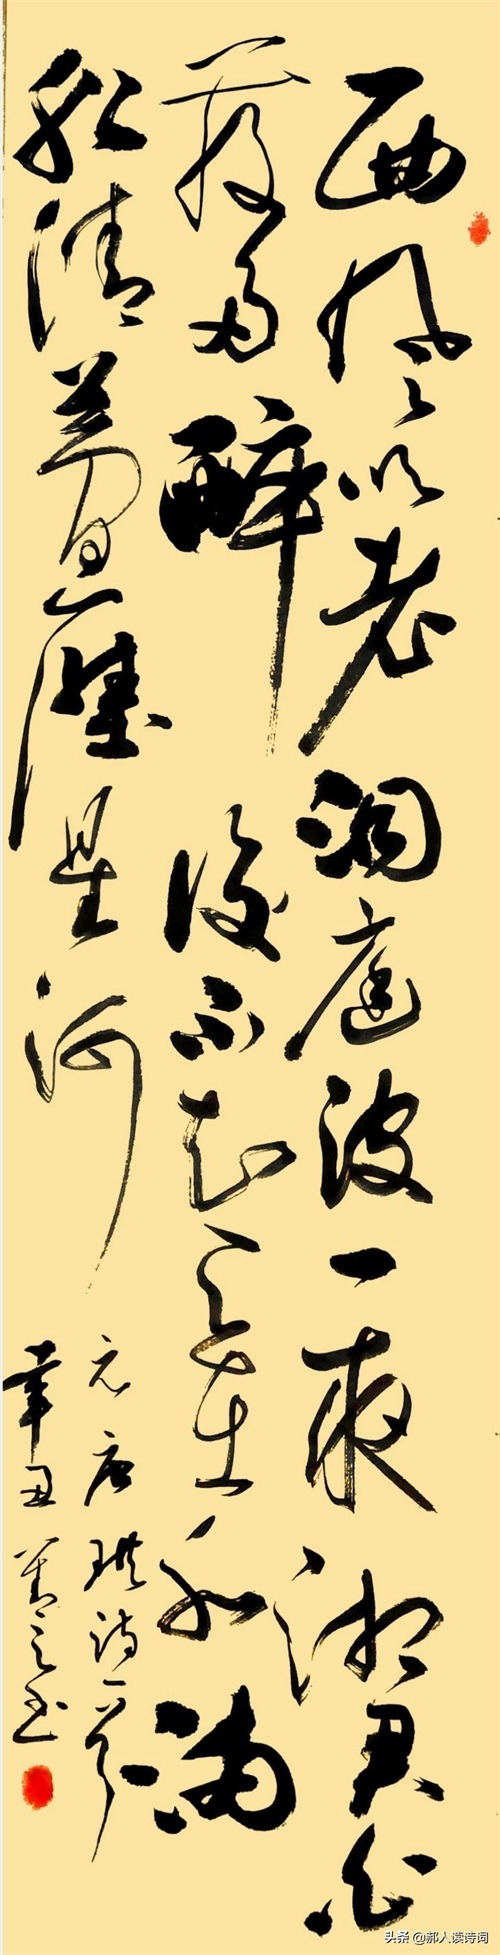 西风吹老洞庭波一夜湘君白
發多醉後不知天在水满
船清梦壓星河
元唐珙诗一首
辛丑 书
头条 @郝人读诗词